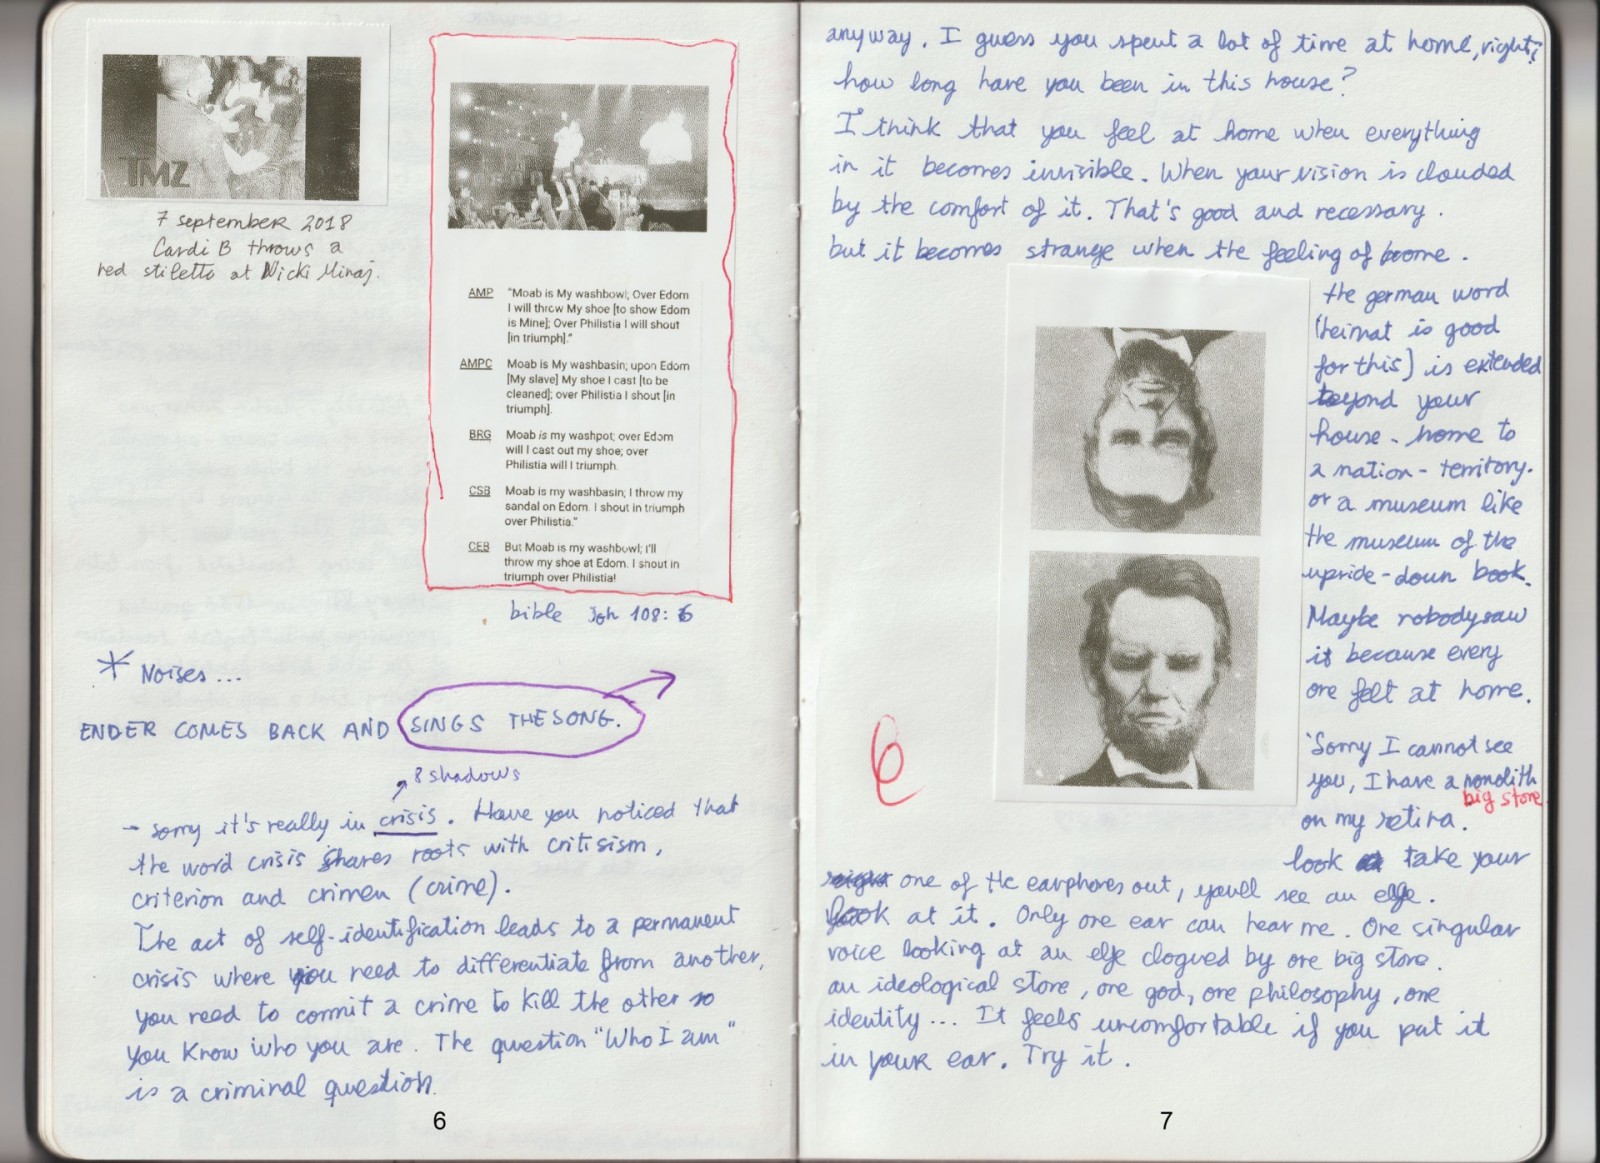 TMZ
7 september 2018
Cardi B throws a
red stiletto at Nicki Minaj.
AMP "Moab is My washbowl; Over Edom
I will throw My shoe [to show Edom
is Mine]; Over Philistia I will shout
[in triumph]."
AMPC Moab is My washbasin; upon Edom
[My slave] My shoe I cast [to be
cleaned]; over Philistia I shout [in
triumph].
BRG Moab is my washpot; over Edom
will I cast out my shoe; over
Philistia will I triumph.
CSB Moab is my washbasin; I throw my
sandal on Edom. I shout in triumph
over Philistia."
CEB But Moab is my washbowl; I'll
throw my shoe at Edom. I shout in
triumph over Philistia!
bible Joh 108:
* Noises...
ENDER COMES BACK AND SINGS THE SONG.
8 shadows
- sorry it's really in crisis. Have you noticed that
the word crisis shares roots with critisism,
criterion and crimen (crime).
The act of self-identification leads to a permanent
crisis where you need to differentiate from another,
you need to commit a crime to kill the other so
you know who you are. The question "Who I am"
is a criminal question.
6
anyway. I guess you spent a lot of time at home, right?
how long have you been in this house?
I think that you feel at home when everything
in it becomes invisible. When your vision is clouded
by the comfort of it. That's good and necessary.
but it becomes strange when the feeling of home.
the german word
(heimat is good
for this) is extended
beyond your
house - home to
a nation - territory.
or a museum like
the museum of the
upside-down book.
Maybe nobody saw
it because every
one felt at home.
Sorry I cannot see
you, I have a monolith
big stone
on my retina.
look take your
one of the earphones out, youll see an elge.
look at it. Only one ear can hear me. One singular
voice looking at an elge clogued by one big stone.
an ideological stone, one god, one philosophy, one
identity... It feels uncomfortable if you put it
in your ear. Try it.
7